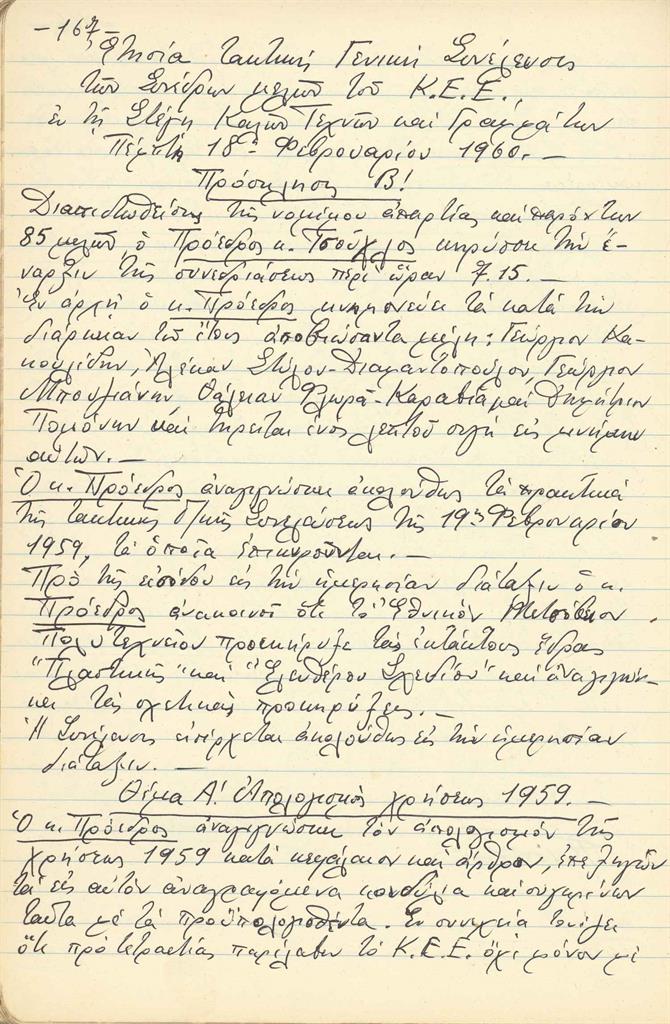 -167-
Ἐτησία τακτική Γενική Συνέλευσις
τῶν Συνέδρων μελῶν τοῦ Κ.Ε.Ε.,
ἐν τῇ Στέγῃ Καλῶν Τεχνῶν καί Γραμμάτων
Πέμπτη 18ῃ Φεβρουαρίου 1960.—
Πρόσκλησις Β!
Διαπιστωθείσης τῆς νομίμου ἀπαρτίας καί παρόντων
85 μελῶν ὁ Πρόεδρος κ. Τσούχλος κηρύσσει τήν ἔ-
ναρξιν τῆς συνεδριάσεως περί ὥραν 7.15.—
Ἐν ἀρχῇ ὁ κ. Πρόεδρος μνημονεύει τά κατά τήν
διάρκειαν τοῦ ἔτους ἀποβιώσαντα μέλη: Γεώργιον Κα-
κουλίδην, Ἀλέκαν Στύλου-Διαμαντοπούλου, Γεώργιον
Μπουγιάνην, Θάλειαν Φλωρᾶ-Καραβία καί Δημήτριον
καί τηρεῖται ἑνός λεπτοῦ σιγή εἰς μνήμην
αὐτῶν.—
Ὁ κ. Πρόεδρος ἀναγιγνώσκει ἀκολούθως τά πρακτικά
τῆς τακτικῆς Γ/κῆς Συνελεύσεως τῆς 19ης Φεβρουαρίου
1959, τά ὁποῖα ἐπικυροῦνται.—
Πρό τῆς εἰσόδου εἰς τήν ἡμερησίαν διάταξιν ὁ κ.
Πρόεδρος ἀνακοινοῖ ὅτι τό Ἐθνικόν Μετσόβειον
Πολυτεχνεῖον προεκήρυξε τάς ἐκτάκτους ἕδρας
"Πλαστικῆς" καί "Ἐλευθέρου Σχεδίου" καί ἀναγιγνώσ-
κει τάς σχετικάς προκηρύξεις.—
Ἡ Συνέλευσις εἰσέρχεται ἀκολούθως εἰς τήν ἡμερησίαν
διάταξιν.—
Θέμα Α! Ἀπολογισμός χρήσεως 1959.—
Ὁ κ. Πρόεδρος ἀναγιγνώσκει τόν ἀπολογισμόν τῆς
χρήσεως 1959 κατά κεφάλαιον καί ἄρθρον, ἐπεξηγῶν
τά εἰς αὐτόν ἀναγραφόμενα κονδύλια καί συγκρίνων
ταῦτα μέ τά προϋπολογισθέντα. Ἐν συνεχείᾳ τονίζει
ὅτι πρό τετραετίας παρέλαβεν τό Κ.Ε.Ε. ὄχι μόνον μέ